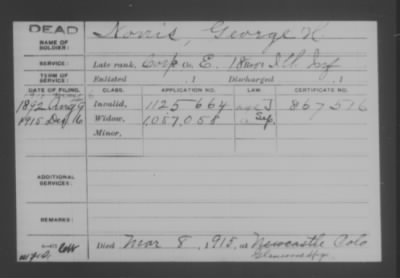 DEAD
NAME OF SOLDIER: Norris, George K
SERVICE: Late rank, Corp Co. E, 18 Regt Ill. Inf
TERM OF SERVICE: Enlisted , 1 Discharged , 1
DATE OF FILING. CLASS. APPLICATION NO. LAW. CERTIFICATE NO.
1892 Aug 9 Invalid, 1125664 857516
1915 Dec 16 Widow, 1,057,058
Minor,
ADDITIONAL SERVICES:
REMARKS:
Died Mar 8, 1915, at Newcastle Colo